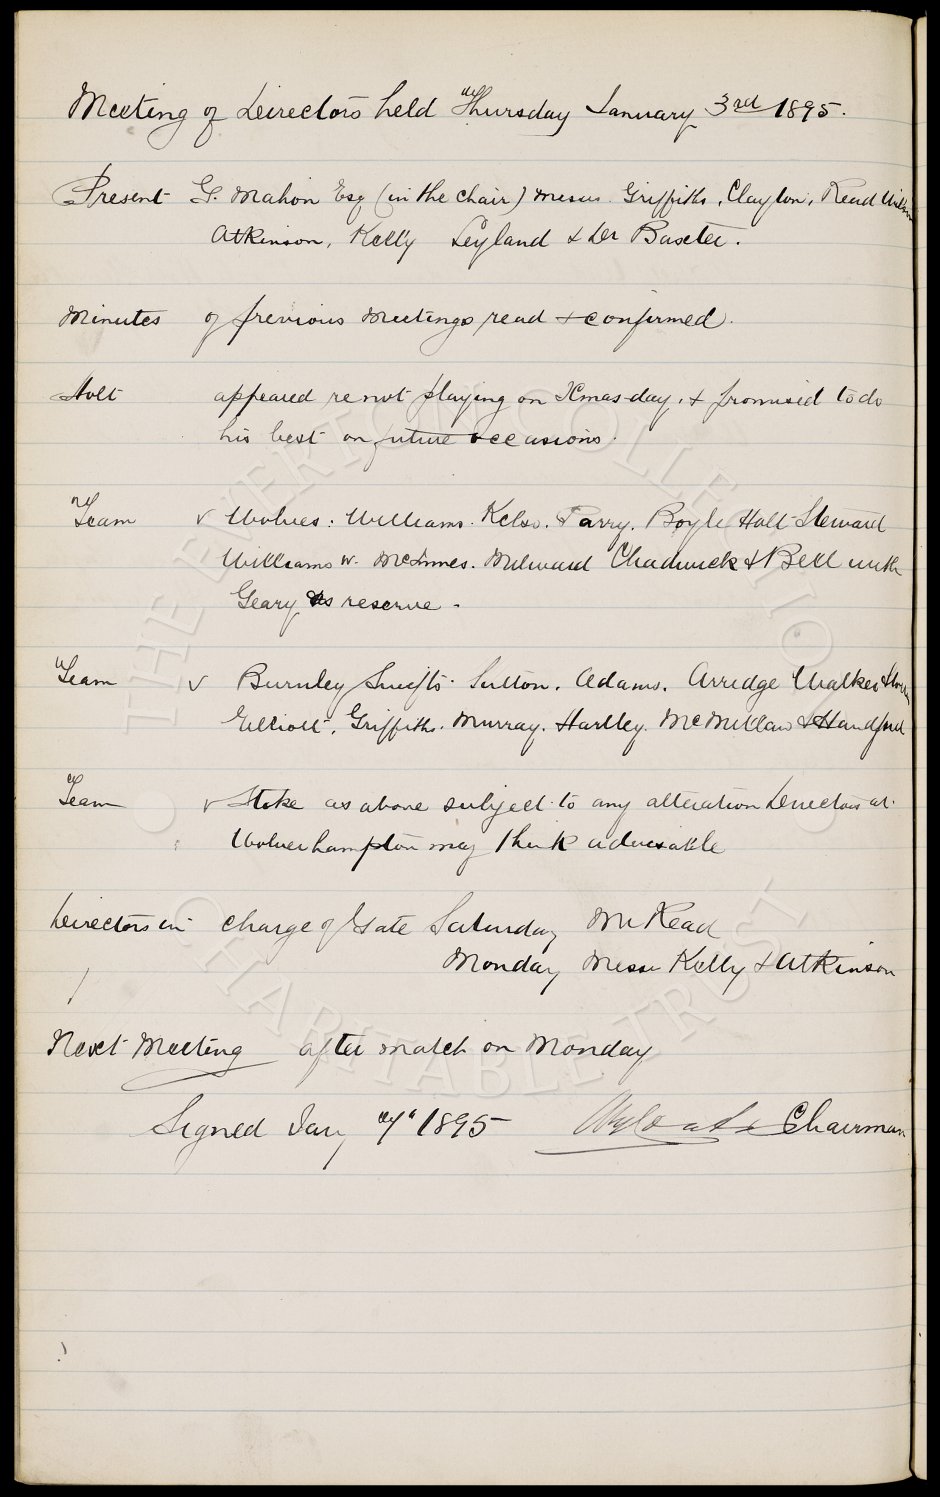 Meeting of Directors held Thursday January 3rd 1895.
Present G. Mahon Esq (in the chair) Messrs. Griffiths, Clayton, Read Wilson
Atkinson, Kelly Leyland & Dr Baxter.
Minutes of previous Meetings read & confirmed.
Holt appeared re not playing on Xmas-day, & promised to do
his best on future occasions.
Team v Wolves. Williams. Kelso. Parry. Boyle Holt Steward
Williams W. McInnes. Milward Chadwick & Bell with
Geary as reserve.
Team v Burnley Swifts. Sutton. Adams. Arridge Walker
Elliott, Griffiths. Murray. Hartley. McMillan & Handford
Team v Stoke as above subject to any alteration Directors at
Wolverhampton may think advisable
Directors in charge of Gate Saturday Mr Read
Monday Messrs Kelly & Atkinson
Next Meeting after match on Monday
Signed Jany 7th 1895 Chairman
THE EVERTON COLLECTION
CHARITABLE TRUST